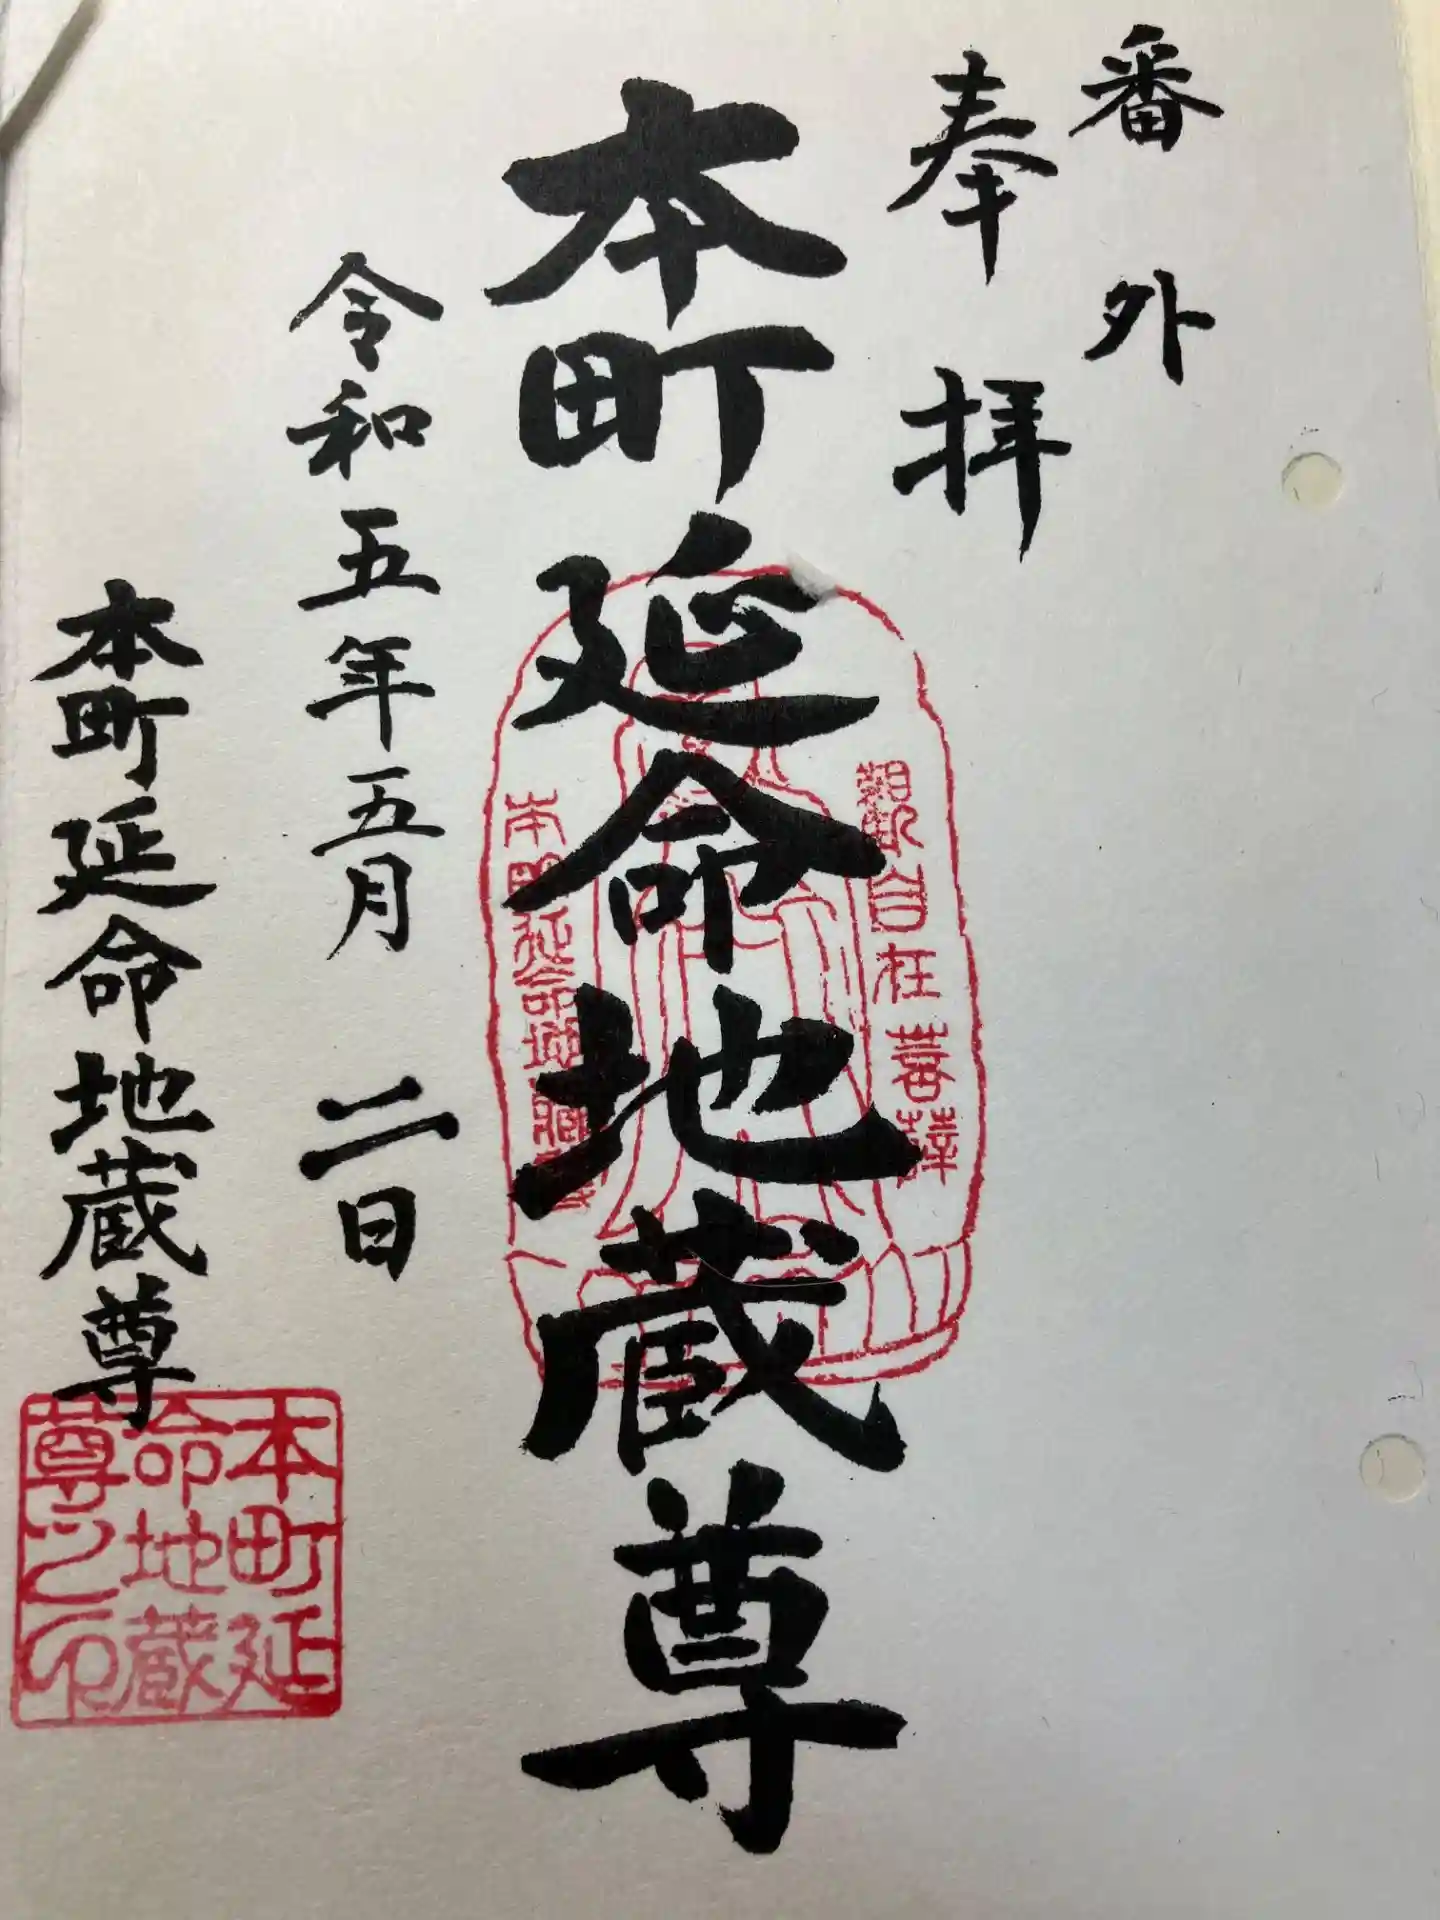 番外
奉拝
本町延命地蔵尊
觀自在菩薩
本町延命地蔵尊
令和五年五月二日
本町延命地蔵尊
本町延
命地蔵
尊之印